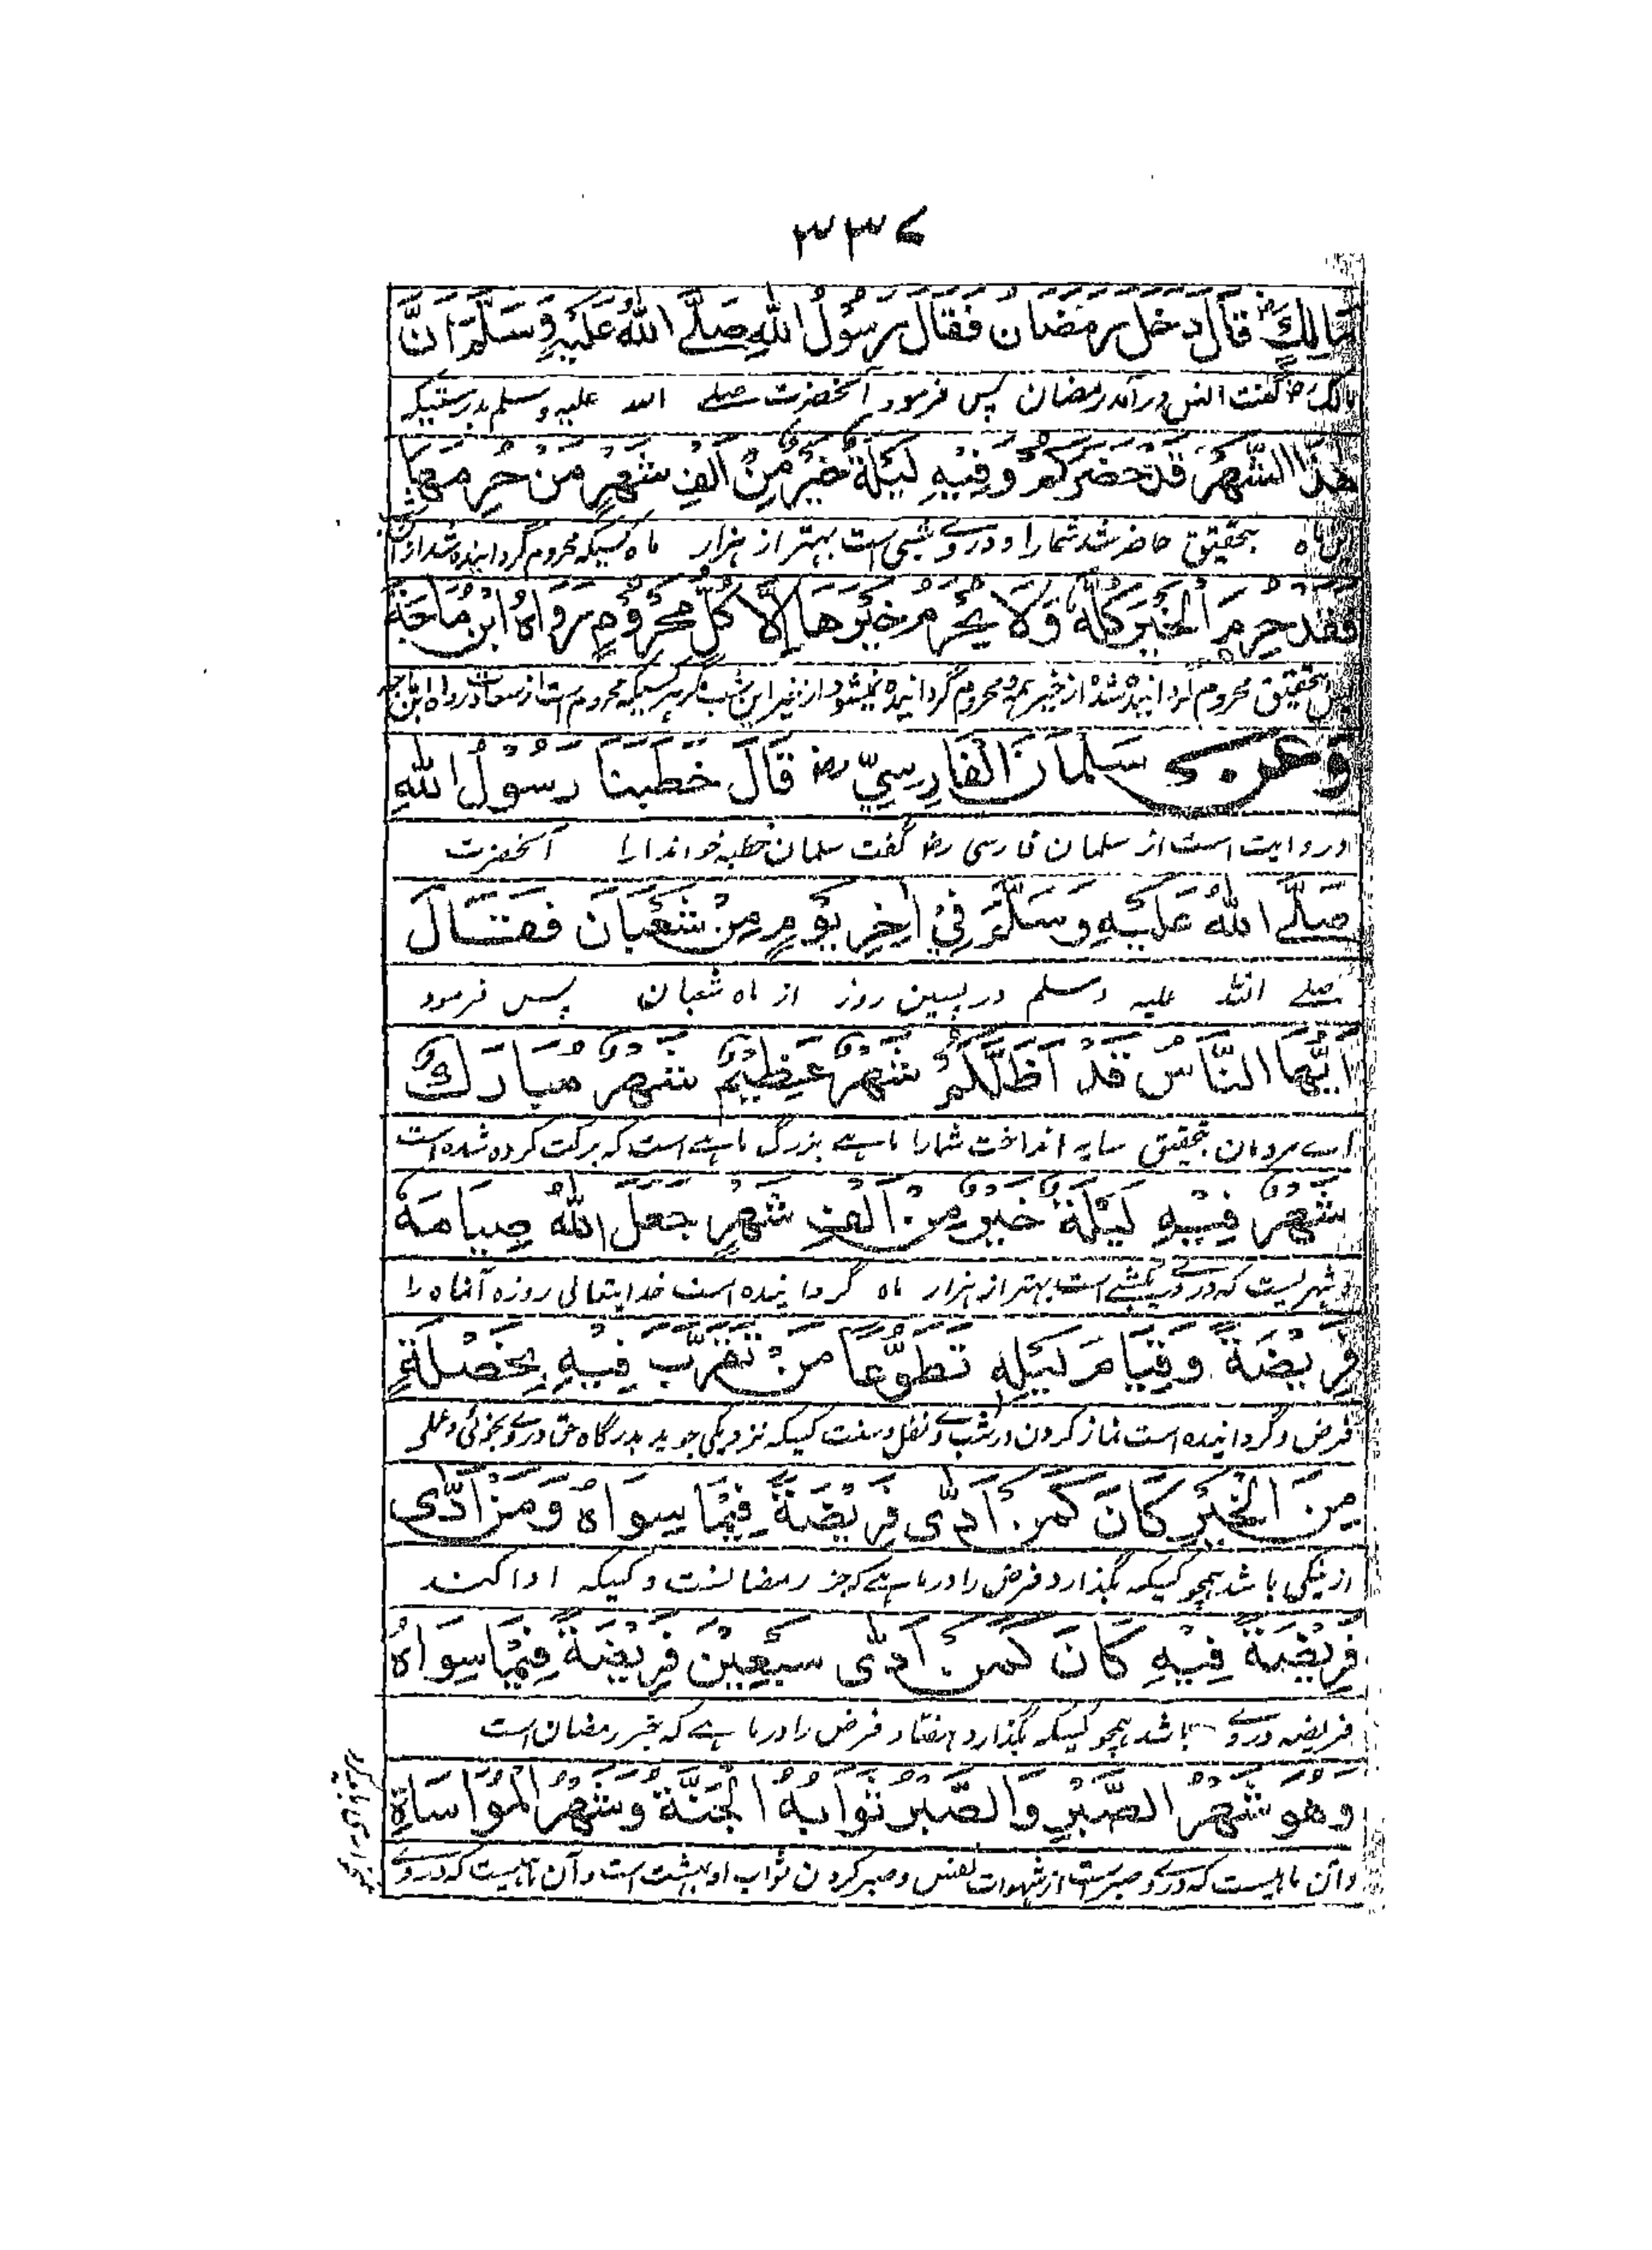 ۳۳۷
مَالِكٍ رض قَالَ دَخَلَ رَمَضَانُ فَقَالَ رَسُوْلُ اللهِ صَلَّے اللهُ عَلَيْهِ وَسَلَّمَ اَنَّ
مالک رض گفت انس درآمد رمضان پس فرمود آنحضرت صلے الله علیه وسلم بدرستیکه
هٰذَا الشَّهْرَ قَدْ حَضَرَكُمْ وَفِيْهِ لَيْلَةٌ خَيْرٌ مِّنْ اَلْفِ شَهْرٍ مَنْ حُرِمَهَا
این ماه بتحقیق حاضر شد شما را و در وے شبی است بهتر از هزار ماه کسیکه محروم گردانیده شد از آن شب
فَقَدْ حُرِمَ الْخَيْرَ كُلَّهُ وَلَا يُحْرَمُ خَيْرَهَا اِلَّا كُلُّ مَحْرُوْمٍ رَوَاهُ ابْنُ مَاجَةَ
پس بتحقیق محروم گردانیده شد از خیر همه و محروم گردانیده نمیشود از خیر این شب مگر هر کسیکه محروم است از سعادت رواه ابن ماجه
وَعَنْ سَلْمَانَ الْفَارِسِيِّ رض قَالَ خَطَبَنَا رَسُوْلُ اللهِ
و روایت است از سلمان فارسی رض گفت سلمان خطبه خواند ما را آنحضرت
صَلَّے اللهُ عَلَيْهِ وَسَلَّمَ فِيْ اٰخِرِ يَوْمٍ مِنْ شَعْبَانَ فَقَالَ
صلے الله علیه وسلم در پسین روز از ماه شعبان پس فرمود
اَيُّهَا النَّاسُ قَدْ اَظَلَّكُمْ شَهْرٌ عَظِيْمٌ شَهْرٌ مُبَارَكٌ
اے مردمان بتحقیق سایه انداخت شما را ماہے بزرگ ماہے است که برکت کرده شده است
شَهْرٌ فِيْهِ لَيْلَةٌ خَيْرٌ مِنْ اَلْفِ شَهْرٍ جَعَلَ اللهُ صِيَامَهُ
و شهریست که در وے یکشبے است بهتر از هزار ماه گردانیده است خدایتعالی روزه آنماه را
فَرِيْضَةً وَقِيَامَ لَيْلِهِ تَطَوُّعًا مَنْ تَقَرَّبَ فِيْهِ بِخَصْلَةٍ
فرض و گردانیده است نماز کردن در شب وے نفل و سنت کسیکه نزدیکی جوید بدرگاه حق در وے بخوئی و عملی
مِنَ الْخَيْرِ كَانَ كَمَنْ اَدّٰى فَرِيْضَةً فِيْمَا سِوَاهُ وَمَنْ اَدّٰى
از نیکی باشد همچو کسیکه بگذارد فرض را در ماہے که جز رمضانست و کسیکه ادا کند
فَرِيْضَةً فِيْهِ كَانَ كَمَنْ اَدّٰى سَبْعِيْنَ فَرِيْضَةً فِيْمَا سِوَاهُ
فریضه در وے باشد همچو کسیکه بگذارد هفتاد فرض را در ماہے که بجز رمضان است
وَهُوَ شَهْرُ الصَّبْرِ وَالصَّبْرُ ثَوَابُهُ الْجَنَّةُ وَشَهْرُ الْمُوَاسَاةِ
و آن ماهیست که در وے صبر است از شهوات نفس و صبر کردن ثواب او بهشت است و آن ماهیست که در وے